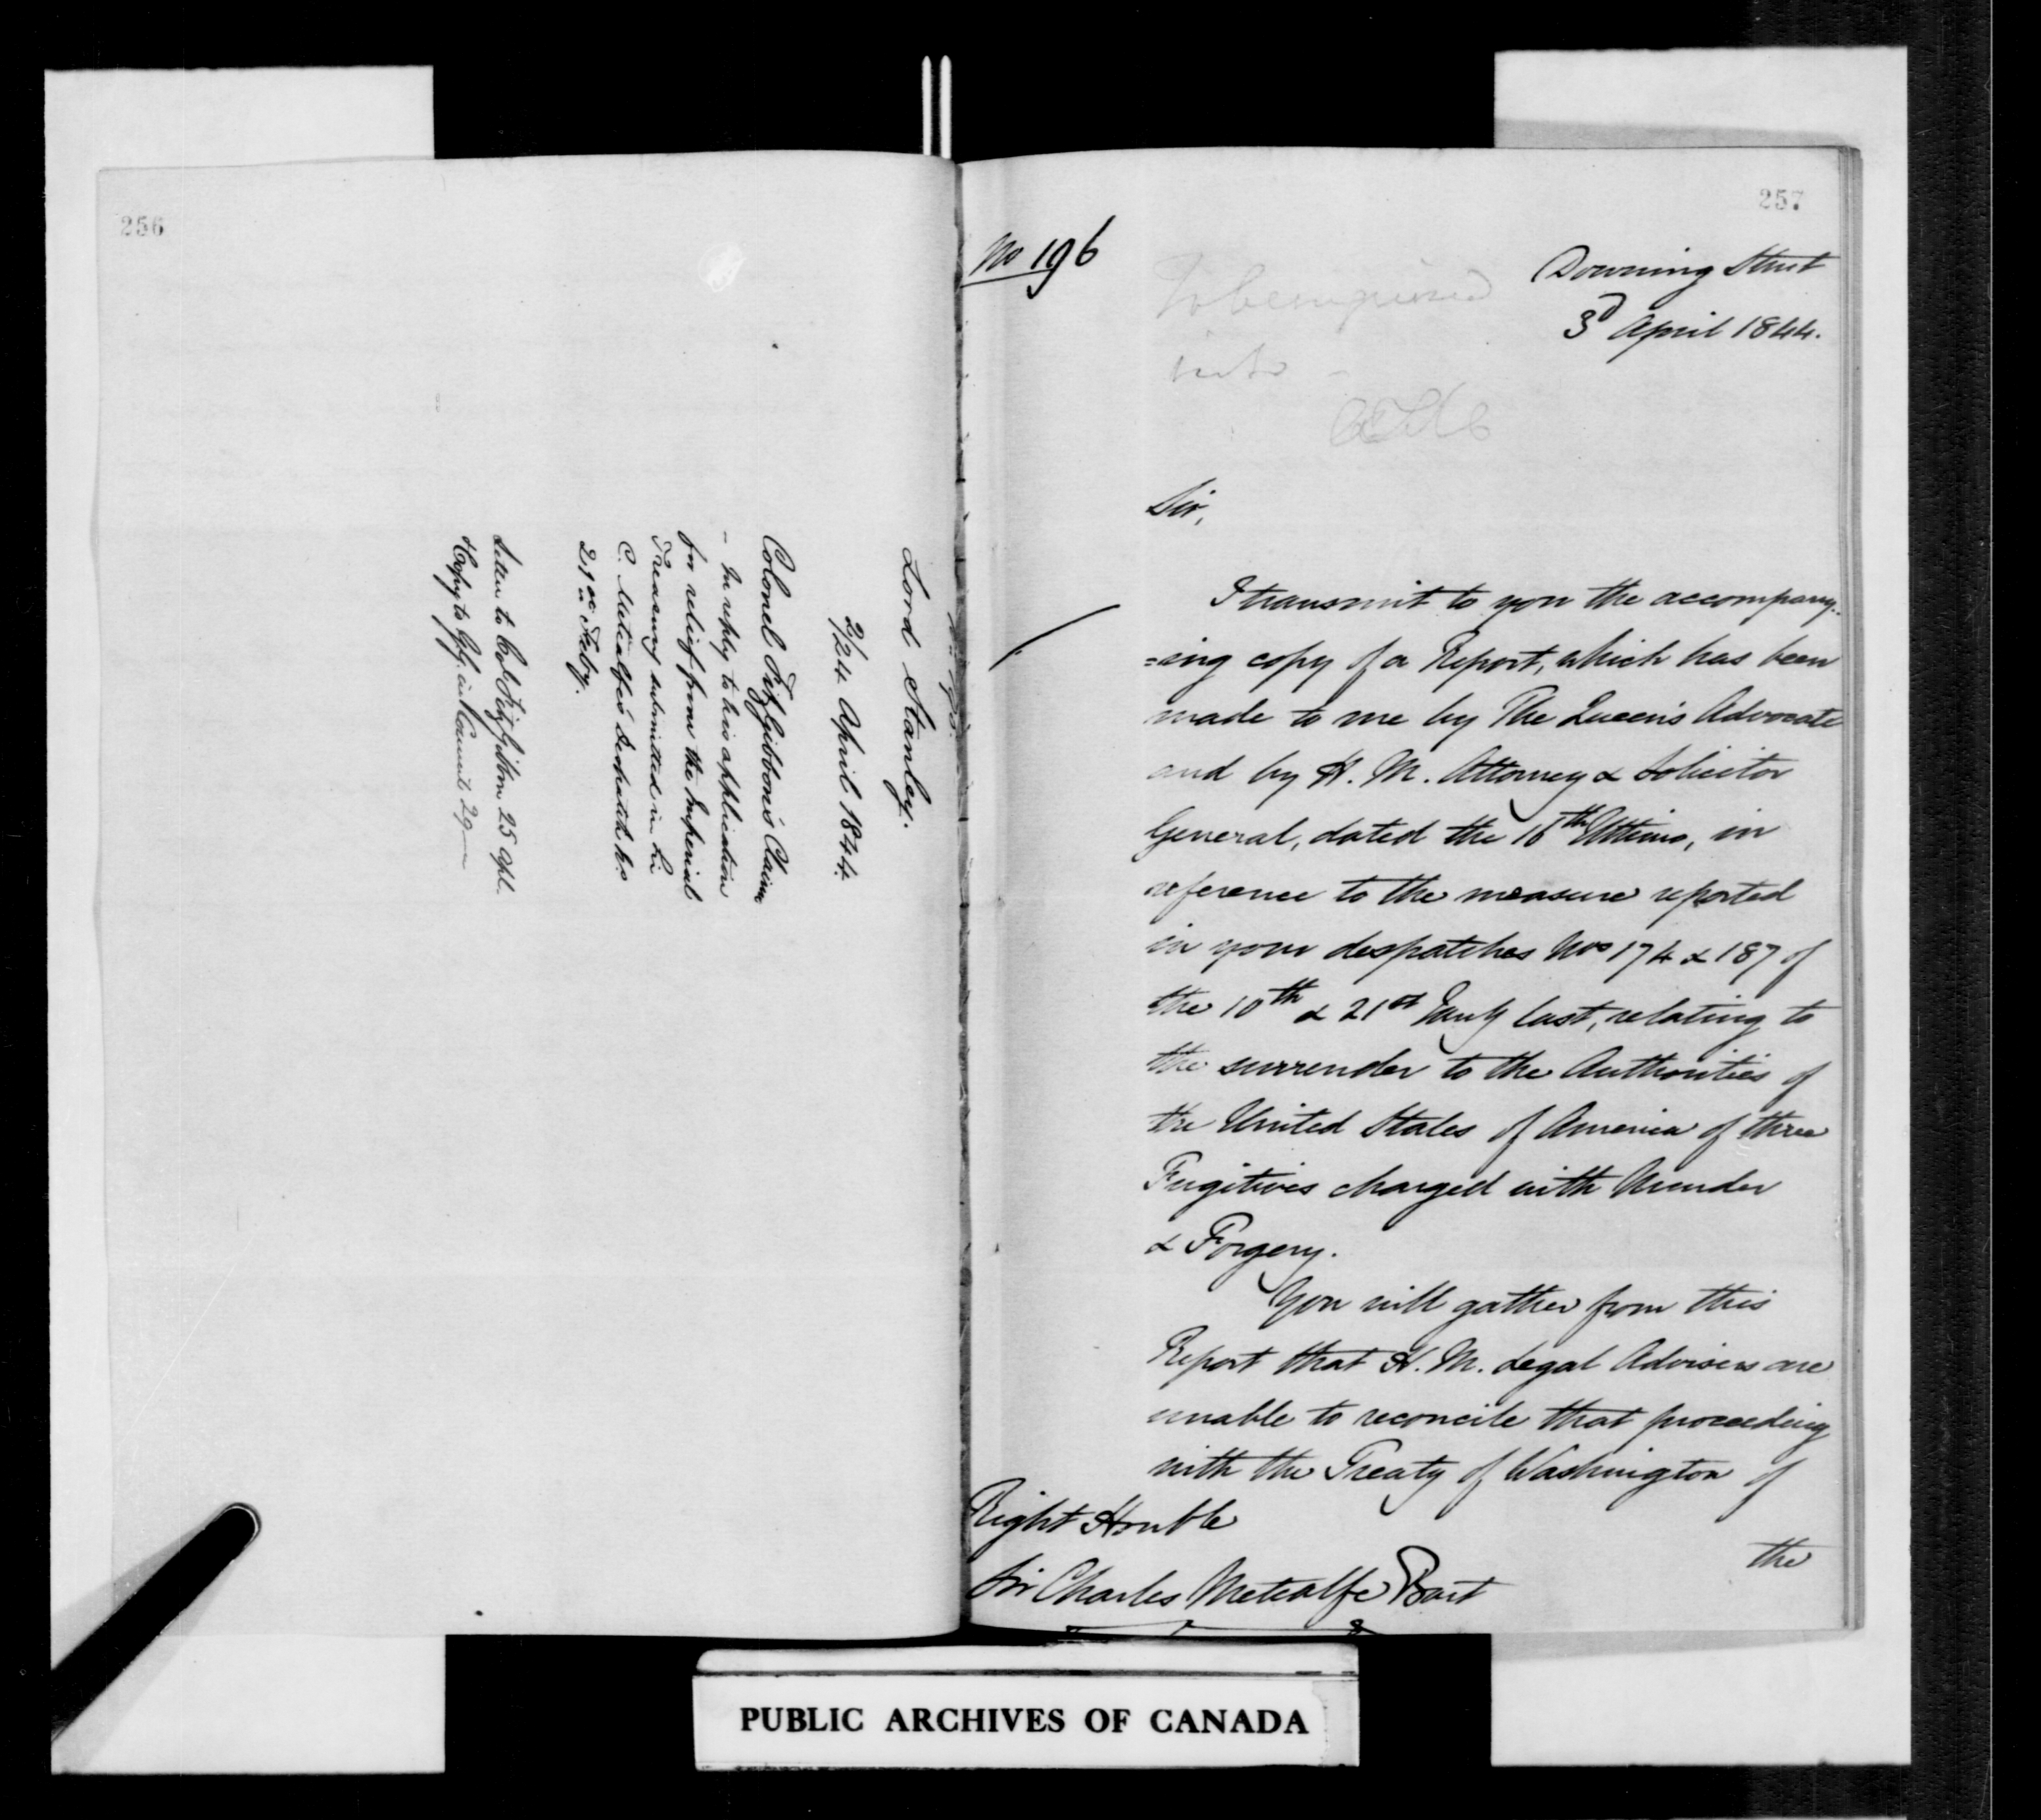 256
Lord Stanley.
2/24 April 1844.
Colonel Fitzgibbon's Claim
- In reply to his application
for relief from the Imperial
Treasury submitted in Sir
C. Metcalfe's Despatch No
21 of Feby.
Letter to Col. Fitzgibbon 25 Apl.
Copy to in Council 29
257
No 196
To be enquired
into -
Downing Street
3d April 1844.
Sir,
I transmit to you the accompany-
=ing copy of a Report, which has been
made to me by The Queen's Advocate
and by H. M. Attorney & Solicitor
General, dated the 16th Ultimo, in
reference to the measure reported
in your despatches Nos 174 & 187 of
the 10th & 21st Jany last, relating to
the surrender to the Authorities of
the United States of America of three
Fugitives charged with Murder
& Forgery.
You will gather from this
Report that H. M. Legal Advisers are
unable to reconcile that proceeding
with the Treaty of Washington of
the
Right Honble
Sir Charles Metcalfe Bart
PUBLIC ARCHIVES OF CANADA